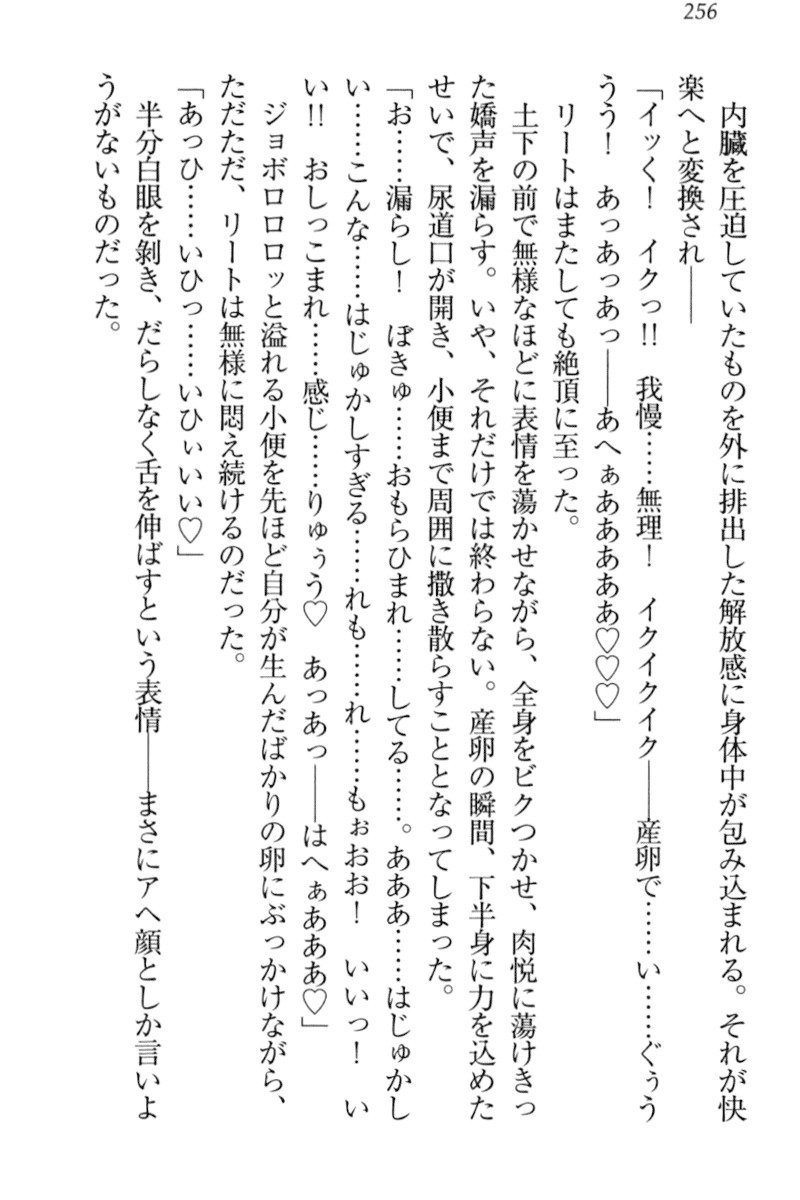 256
内臓を圧迫していたものを外に排出した解放感に身体中が包み込まれる。それが快
楽へと変換され――
「イッく！　イクっ!!　我慢……無理！　イクイクイク――産卵で……い……ぐぅう
うう！　あっあっあっ――あへぁああああ♡♡♡」
リートはまたしても絶頂に至った。
土下の前で無様なほどに表情を蕩かせながら、全身をビクつかせ、肉悦に蕩けきっ
た嬌声を漏らす。いや、それだけでは終わらない。産卵の瞬間、下半身に力を込めた
せいで、尿道口が開き、小便まで周囲に撒き散らすこととなってしまった。
「お……漏らし！　ぼきゅ……おもらひまれ……してる……。あああ……はじゅかし
い……こんな……はじゅかしすぎる……れも……れ……もぉおお！　いいっ！　い
い!!　おしっこまれ……感じ……りゅぅう♡　あっあっ――はへぁあああ♡」
ジョボロロロッと溢れる小便を先ほど自分が生んだばかりの卵にぶっかけながら、
ただただ、リートは無様に悶え続けるのだった。
「あっひ……いひっ……いひぃいい♡」
半分白眼を剥き、だらしなく舌を伸ばすという表情――まさにアヘ顔としか言いよ
うがないものだった。